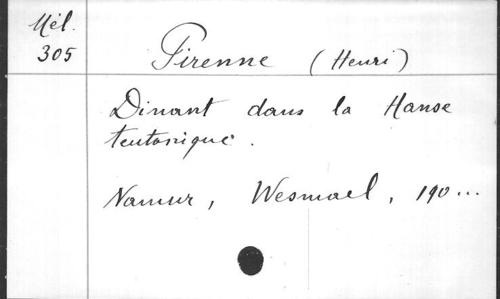 Mél.
305
Pirenne (Henri)
Dinant dans la Hanse
teutonique.
Namur, Wesmael, 190...